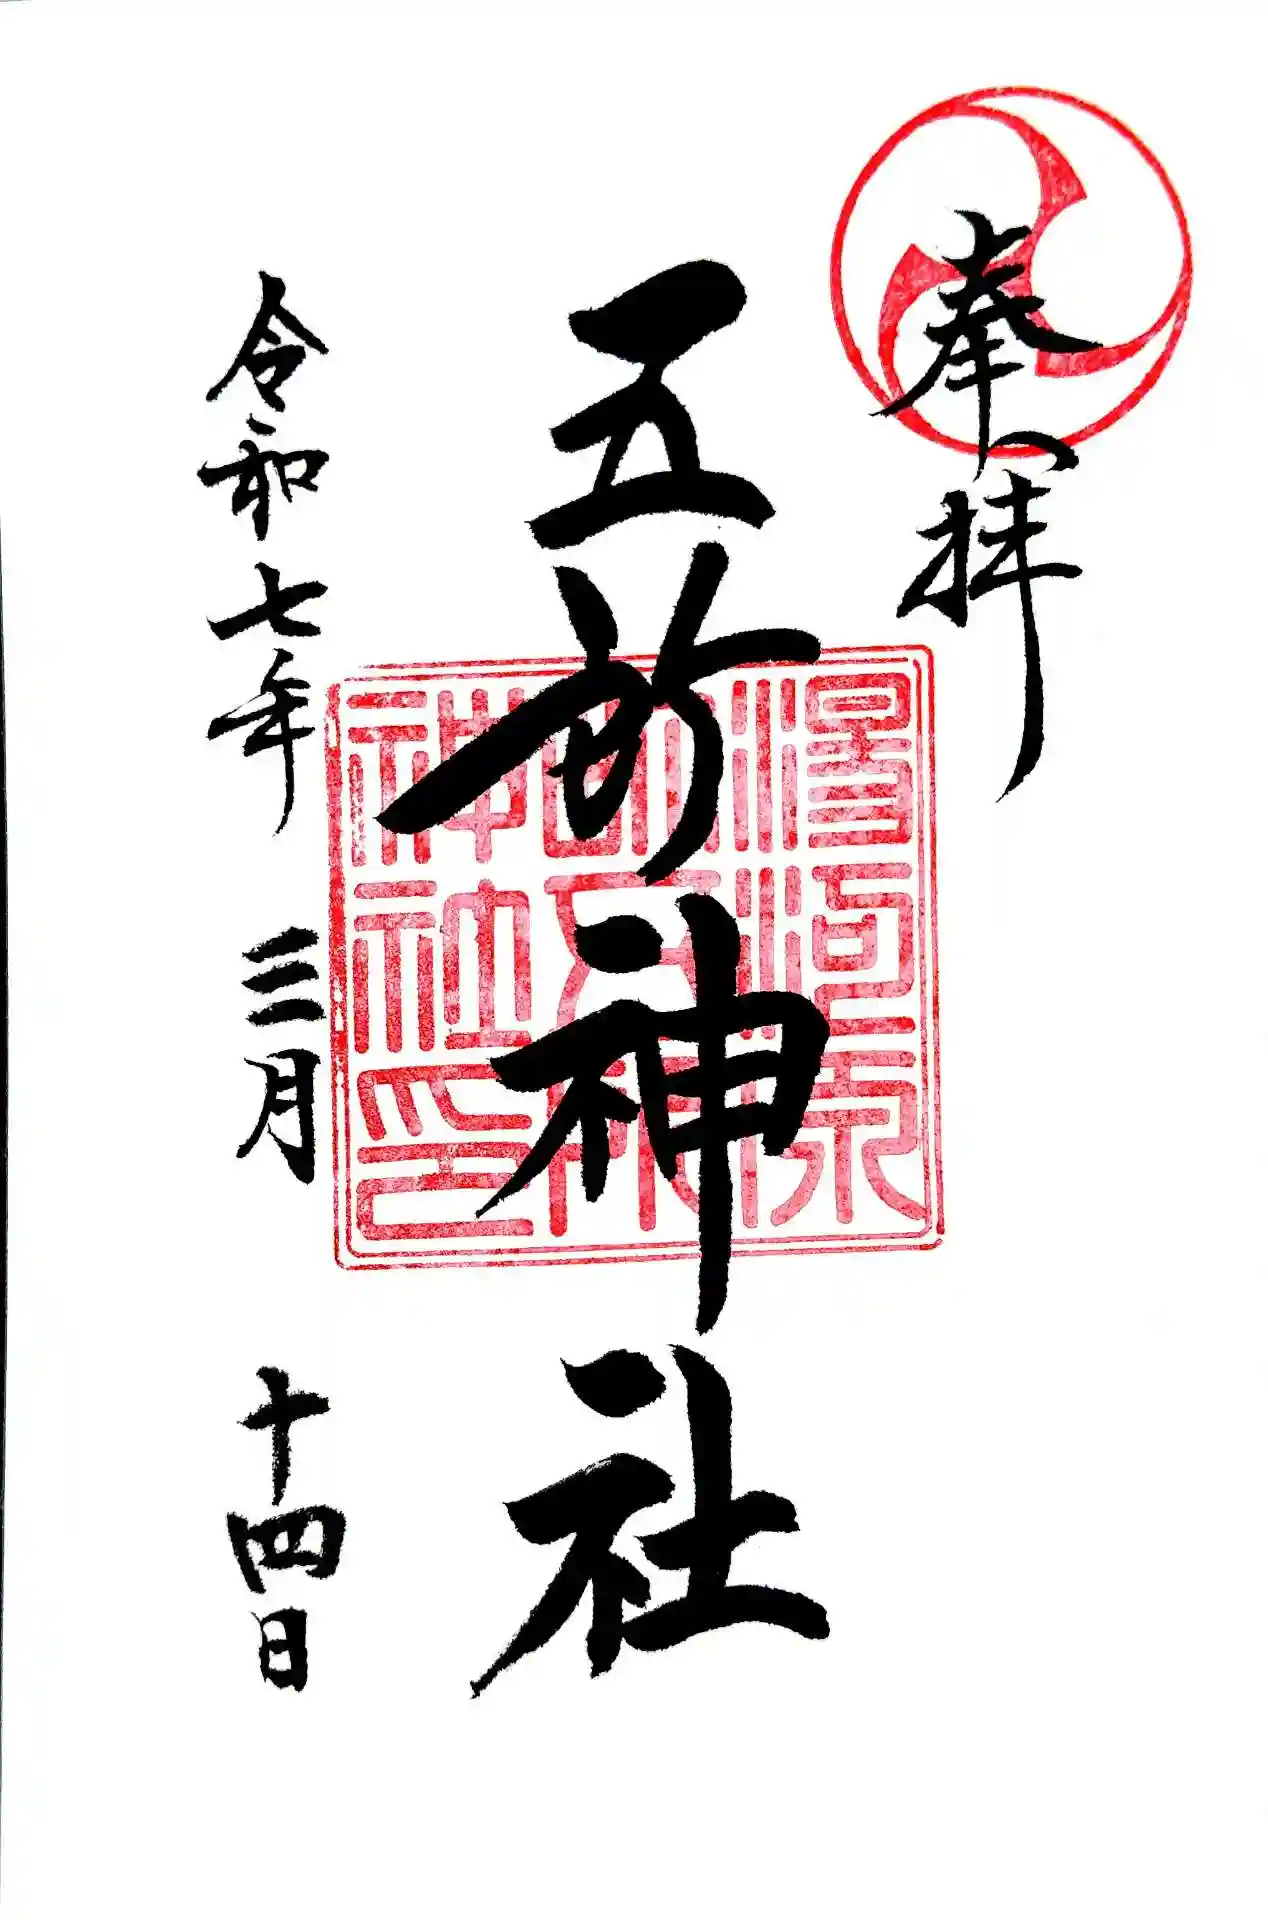 奉拝
五所神社
令和七年 三月 十四日
湯河原
神社印